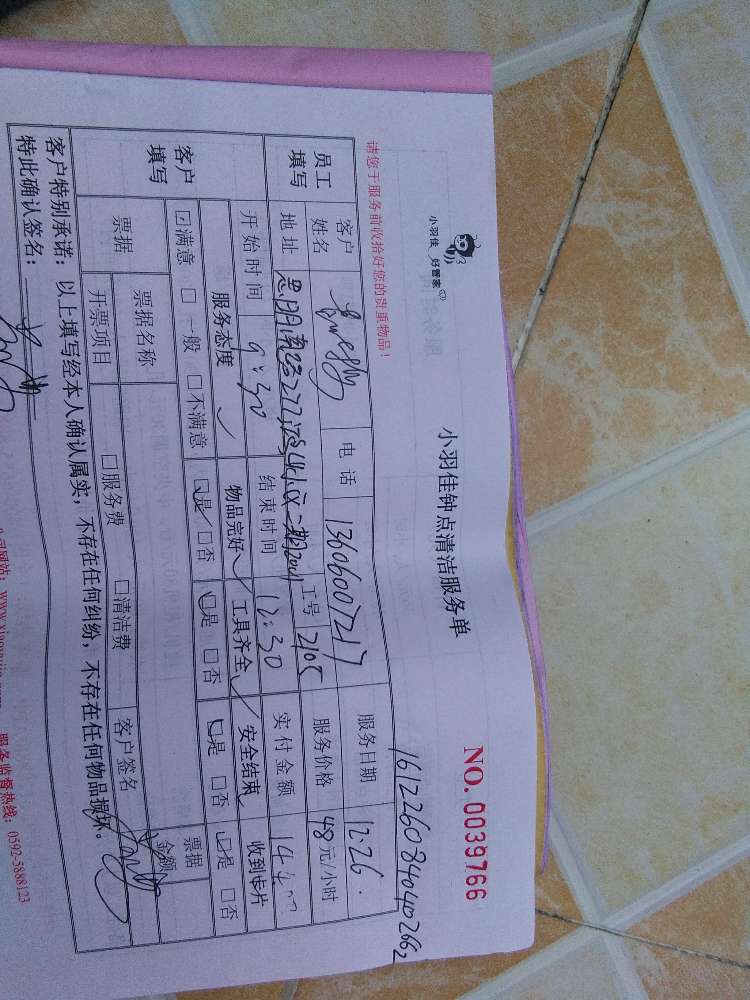 小羽佳 好管家
小羽佳钟点清洁服务单
NO. 0039766
1612260840402662
请您于服务前收拾好您的贵重物品！
员工填写
客户姓名
电话 13606007217
服务日期 12.26.
地址 思明南路277号 小区二期2001
工号 2105
服务价格 48元/小时
客户填写
开始时间 9:30
结束时间 12:30
实付金额 144.00
服务态度 ✓
物品完好 ✓
工具齐全 ✓
安全结束
收到卡片
☑满意 □一般 □不满意
☑是 □否
☑是 □否
☑是 □否
☑是 □否
票据
票据名称
开票项目
□服务费
□清洁费
客户签名
票据金额
客户特别承诺：以上填写经本人确认属实，不存在任何纠纷，不存在任何物品损坏。
特此确认签名：
服务监督热线：0592-5888123